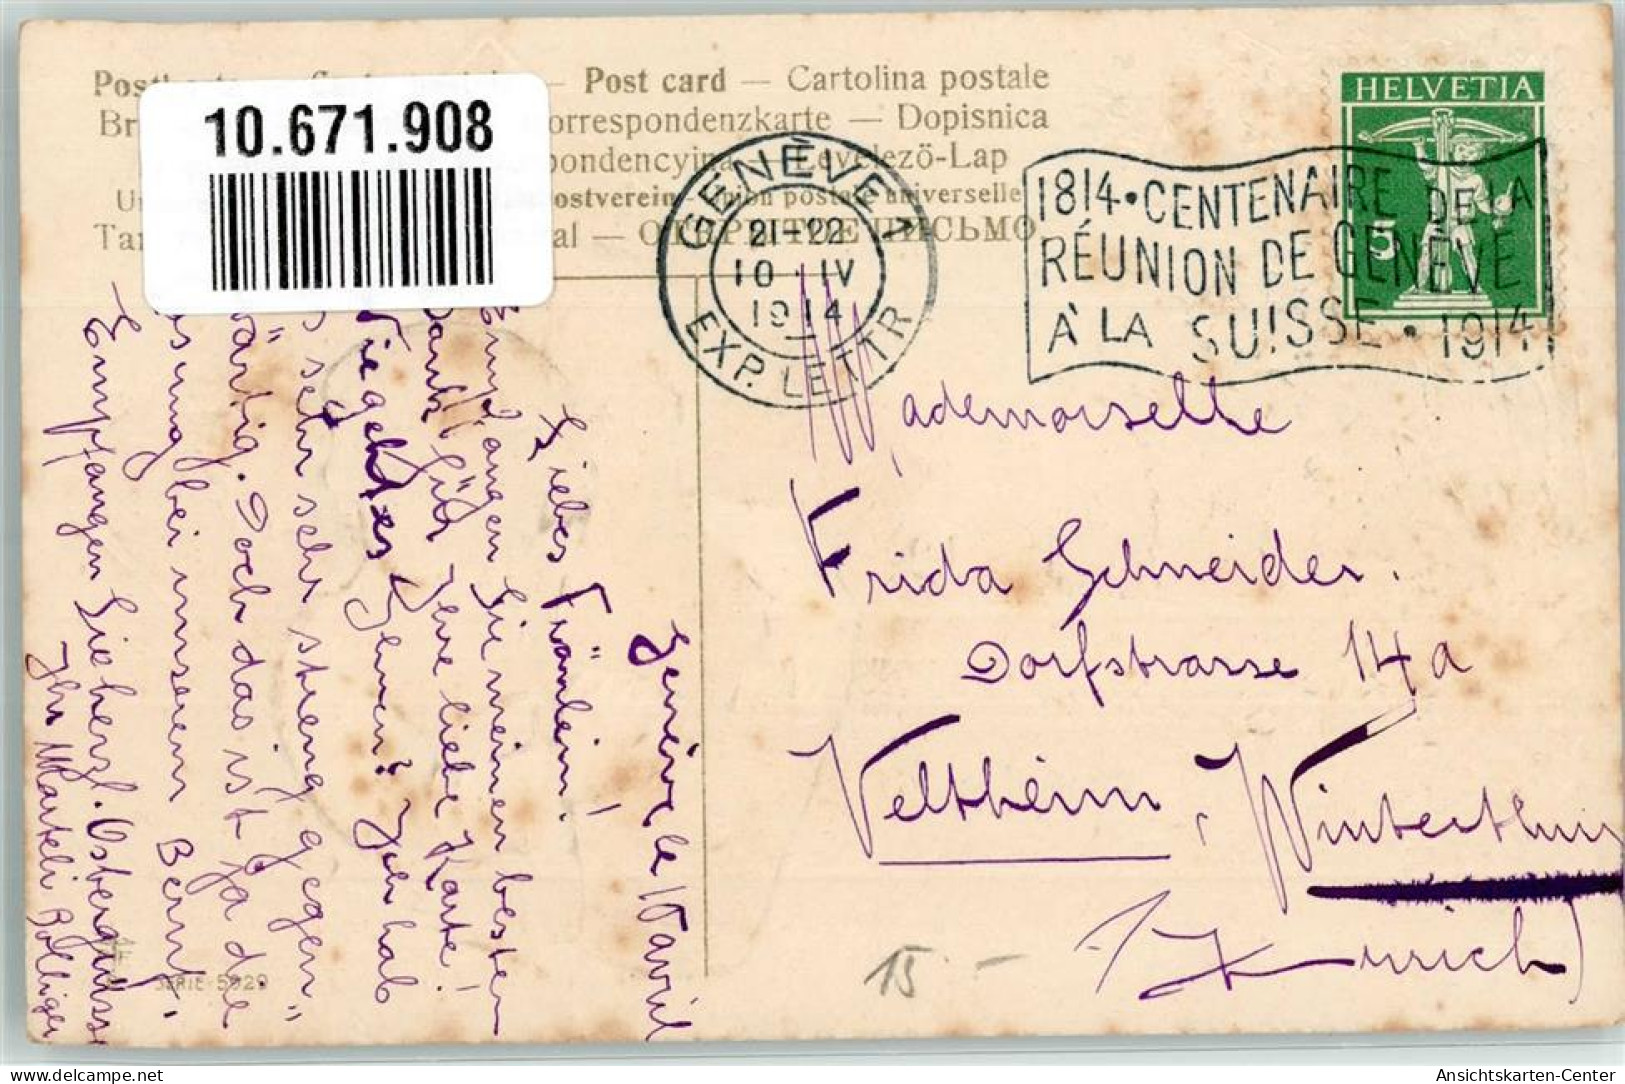 Post card — Cartolina postale
orrespondenzkarte — Dopisnica
Levelező-Lap
ostverein - Union postale universelle
10.671.908
GENÈVE 1
21-22
10 · IV
1914
EXP. LETTR
1814 · CENTENAIRE DE LA
RÉUNION DE GENÈVE
À LA SUISSE · 1914
HELVETIA
5
Mademoiselle
Frida Schneider.
Dorfstrasse 14a
Veltheim, Winterthur
(Zürich)
15 -
Genève le 10 avril
Liebes Fräulein!
Empfangen Sie meinen besten
Dank für Ihre liebe Karte!
Wie geht es Ihnen? Ich hab
sehr streng gegen
wärtig. Doch das ist ja die
sung bei unserem Beruf.
Empfangen Sie herzl. Ostergrüsse
Ihr Marteli Bolliger
SERIE 5929
Ansichtskarten-Center